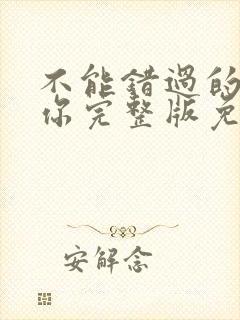 不能错过的
你完整版免
安解念